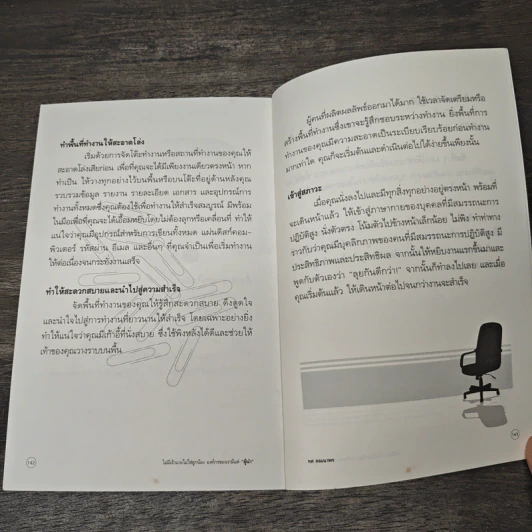 ทำพื้นที่ทำงานให้สะอาดโล่ง
เริ่มด้วยการจัดโต๊ะทำงานหรือสถานที่ทำงานของคุณให้
สะอาดโล่งเสียก่อน เพื่อที่คุณจะได้มีเพียงงานเดียวตรงหน้า หาก
จำเป็น ให้วางทุกอย่างไว้บนพื้นหรือบนโต๊ะที่อยู่ด้านหลังคุณ
รวบรวมข้อมูล รายงาน รายละเอียด เอกสาร และอุปกรณ์การ
ทำงานทั้งหมดซึ่งคุณต้องใช้เพื่อทำงานให้สำเร็จสมบูรณ์ มีพร้อม
ในมือเพื่อที่คุณจะได้เอื้อมหยิบโดยไม่ต้องลุกหรือเคลื่อนที่ ทำให้
แน่ใจว่าคุณมีอุปกรณ์สำหรับการเขียนทั้งหมด แผ่นดิสก์คอม-
พิวเตอร์ รหัสผ่าน อีเมล และอื่นๆ ที่คุณจำเป็นเพื่อเริ่มทำงาน
ให้ต่อเนื่องจนกระทั่งงานเสร็จ
ทำให้สะดวกสบายและนำไปสู่ความสำเร็จ
จัดพื้นที่ทำงานของคุณให้รู้สึกสะดวกสบาย ดึงดูดใจ
และนำใจไปสู่การทำงานที่ยาวนานให้สำเร็จ โดยเฉพาะอย่างยิ่ง
ทำให้แน่ใจว่าคุณมีเก้าอี้ที่นั่งสบาย ซึ่งใช้พิงหลังได้ดีและช่วยให้
เท้าของคุณวางราบบนพื้น
142
ผู้คนที่ผลิตผลลัพธ์ออกมาได้มาก ใช้เวลาจัดเตรียมหรือ
สร้างพื้นที่ทำงานซึ่งเขาจะรู้สึกชอบระหว่างทำงาน ยิ่งพื้นที่การ
ทำงานของคุณมีความสะอาดเป็นระเบียบเรียบร้อยก่อนทำงาน
มากเท่าใด คุณก็จะเริ่มต้นและดำเนินต่อไปได้ง่ายขึ้นเพียงนั้น
เข้าสู่สภาวะ
เมื่อคุณนั่งลงไปและมีทุกสิ่งทุกอย่างอยู่ตรงหน้า พร้อมที่
จะเดินหน้าแล้ว ให้เข้าสู่ภาษากายของบุคคลที่มีสมรรถนะการ
ปฏิบัติสูง นั่งตัวตรง โน้มตัวไปข้างหน้าเล็กน้อย ไม่พิง ทำท่าทาง
ราวกับว่าคุณมีบุคลิกภาพของคนที่มีสมรรถนะการปฏิบัติสูง มี
ประสิทธิภาพและประสิทธิผล จากนั้นให้หยิบงานแรกขึ้นมาและ
พูดกับตัวเองว่า "ลุยกันดีกว่า!" จากนั้นก็ทำลงไปเลย และเมื่อ
คุณเริ่มต้นแล้ว ให้เดินหน้าต่อไปจนกว่างานจะสำเร็จ